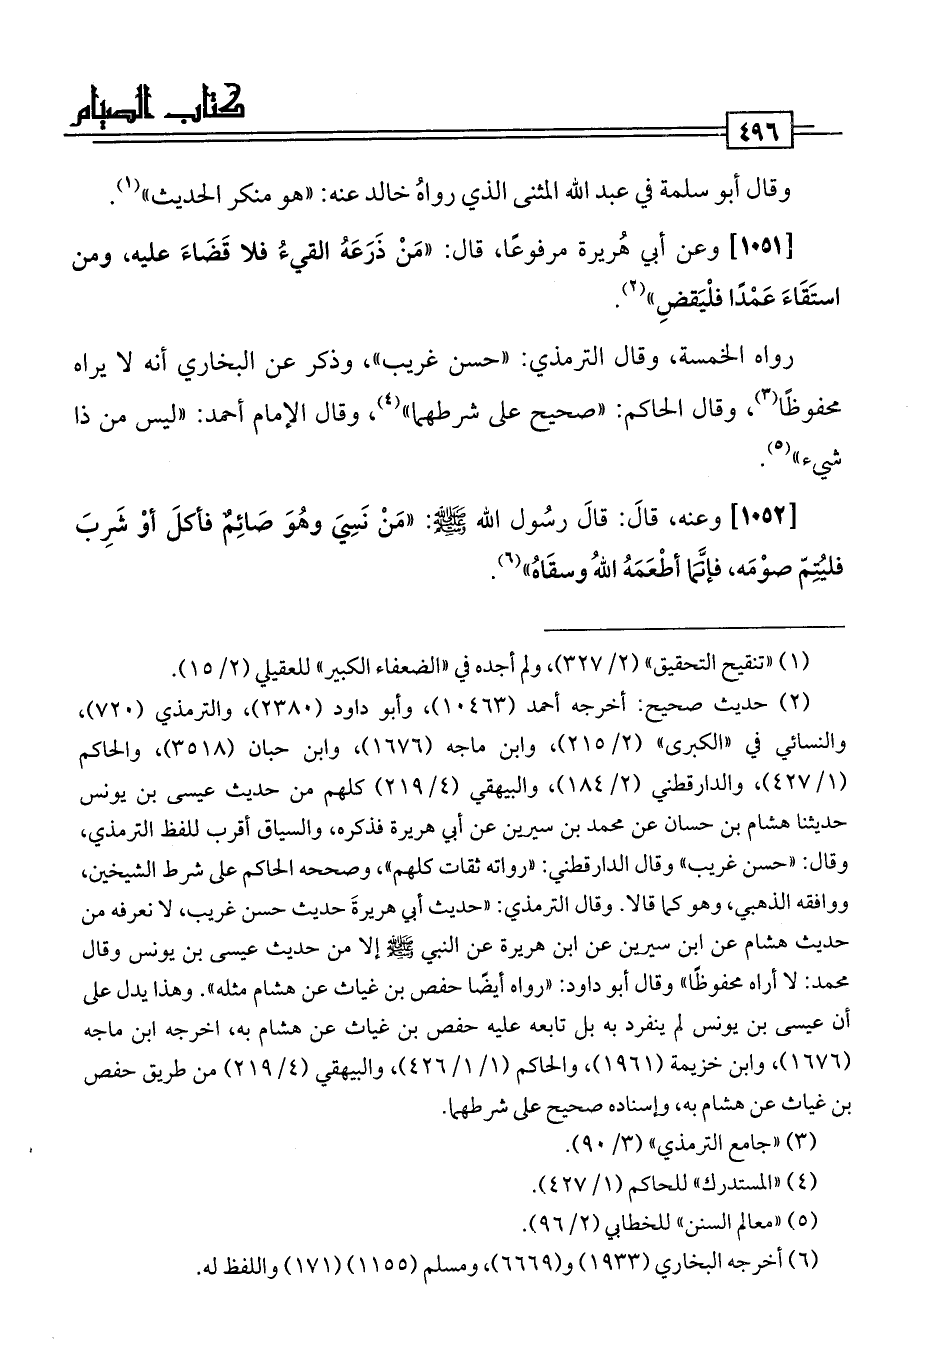 كتاب الصيام
٤٩٦
وقال أبو سلمة في عبد الله المثنى الذي رواهُ خالد عنه: «هو منكر الحديث»(١).
[١٠٥١] وعن أبي هُريرة مرفوعًا، قال: «مَنْ ذَرَعَهُ القيءُ فلا قَضَاءَ عليه، ومن
استَقَاءَ عَمْدًا فلْيَقضِ»(٢).
رواه الخمسة، وقال الترمذي: «حسن غريب»، وذكر عن البخاري أنه لا يراه
محفوظًا(٣)، وقال الحاكم: «صحيح على شرطهما»(٤)، وقال الإمام أحمد: «ليس من ذا
شيء»(٥).
[١٠٥٢] وعنه، قالَ: قالَ رسُول الله ﷺ: «مَنْ نَسِيَ وهُوَ صَائِمٌ فأكلَ أوْ شَرِبَ
فليُتِمّ صوْمَه، فإنَّما أطْعَمَهُ اللهُ وسقَاهُ»(٦).
(١) «تنقيح التحقيق» (٢/ ٣٢٧)، ولم أجده في «الضعفاء الكبير» للعقيلي (٢/ ١٥).
(٢) حديث صحيح: أخرجه أحمد (١٠٤٦٣)، وأبو داود (٢٣٨٠)، والترمذي (٧٢٠)،
والنسائي في «الكبرى» (٢/ ٢١٥)، وابن ماجه (١٦٧٦)، وابن حبان (٣٥١٨)، والحاكم
(١/ ٤٢٧)، والدارقطني (٢/ ١٨٤)، والبيهقي (٤/ ٢١٩) كلهم من حديث عيسى بن يونس
حديثنا هشام بن حسان عن محمد بن سيرين عن أبي هريرة فذكره، والسياق أقرب للفظ الترمذي،
وقال: «حسن غريب» وقال الدارقطني: «رواته ثقات كلهم»، وصححه الحاكم على شرط الشيخين،
ووافقه الذهبي، وهو كما قالا. وقال الترمذي: «حديث أبي هريرةَ حديث حسن غريب، لا نعرفه من
حديث هشام عن ابن سيرين عن ابن هريرة عن النبي ﷺ إلا من حديث عيسى بن يونس وقال
محمد: لا أراه محفوظًا» وقال أبو داود: «رواه أيضًا حفص بن غياث عن هشام مثله». وهذا يدل على
أن عيسى بن يونس لم ينفرد به بل تابعه عليه حفص بن غياث عن هشام به، اخرجه ابن ماجه
(١٦٧٦)، وابن خزيمة (١٩٦١)، والحاكم (١/ ١/ ٤٢٦)، والبيهقي (٤/ ٢١٩) من طريق حفص
بن غياث عن هشام به، وإسناده صحيح على شرطهما.
(٣) «جامع الترمذي» (٣/ ٩٠).
(٤) «المستدرك» للحاكم (١/ ٤٢٧).
(٥) «معالم السنن» للخطابي (٢/ ٩٦).
(٦) أخرجه البخاري (١٩٣٣) و(٦٦٦٩)، ومسلم (١١٥٥) (١٧١) واللفظ له.